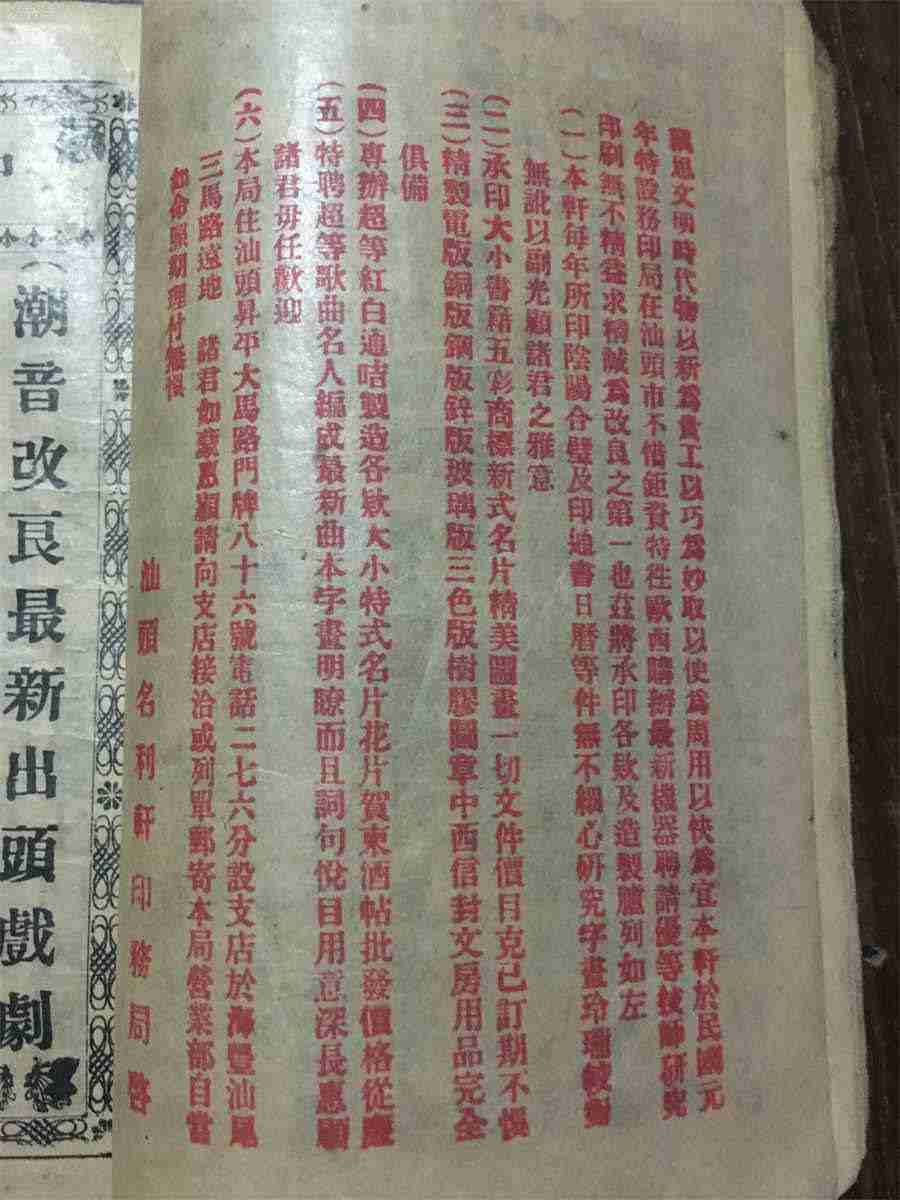 竊思文明時代物以新為貴工以巧為妙取以使為周用以快為宜本軒於民國元
年特設務印局在汕頭市不惜鉅資特往歐西購辦最新機器聘請優等技師研究
印刷無不精益求精誠為改良之第一也茲將承印各欵及造製臚列如左
(一)本軒每年所印陰陽合璧及印通書日曆等件無不細心研究字畫玲瓏校對
無訛以副光顧諸君之雅意
(二)承印大小書籍五彩商標新式名片精美圖畫一切文件價目克己訂期不悞
(三)精製電版銅版鋼版鋅版玻璃版三色版樹膠圖章中西信封文房用品完全
俱備
(四)專辦超等紅白通咭製造各欵大小特式名片花片賀柬酒帖批發價格從廉
(五)特聘超等歌曲名人編成最新曲本字畫明瞭而且詞句悅目用意深長惠顧
諸君毋任歡迎
(六)本局住汕頭昇平大馬路門牌八十六號電話二七六分設支店於海豐汕尾
三馬路遠地 諸君如蒙惠顧請向支店接洽或列單郵寄本局營業部自當
如命照期理付無悞
汕頭名利軒印務局啓
(潮音改良最新出頭戲劇